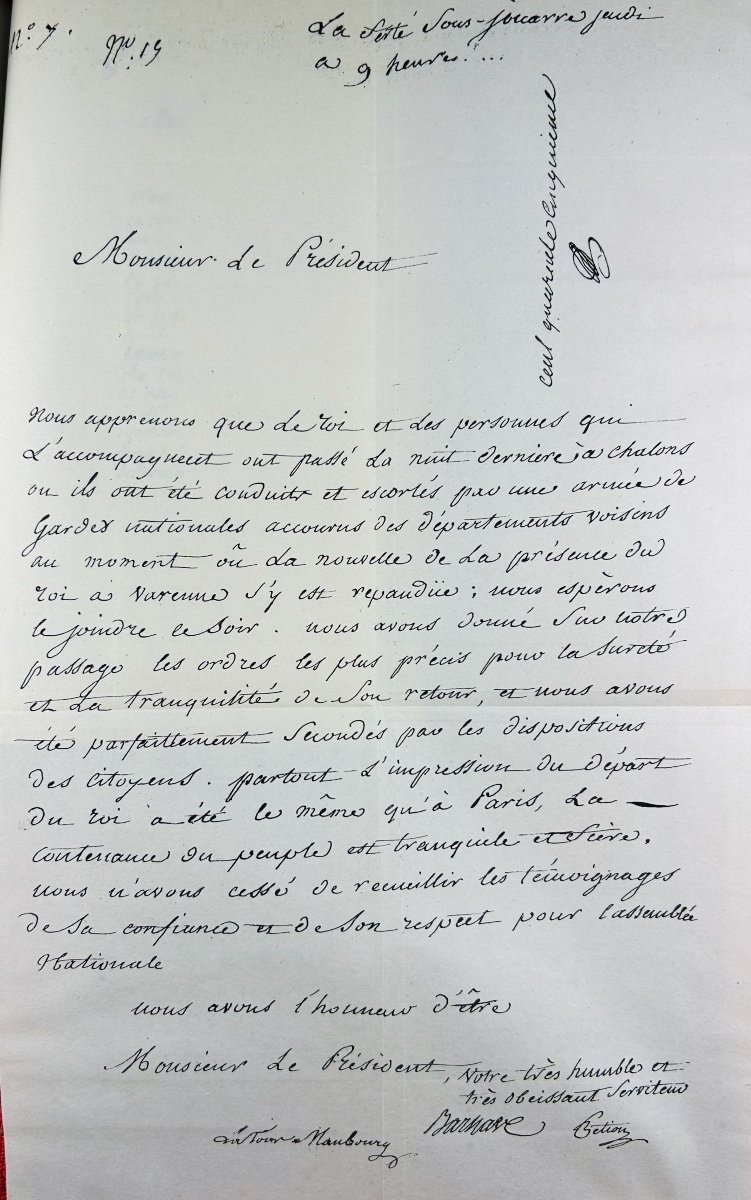 N.º 7.
Nº. 19
La ferté Sous-jouarre jeudi
a 9 heures....
cent quarante cinquieme
Monsieur Le Président
Nous apprenons que Le roi et Les personnes qui
L'accompagnent ont passé La nuit derniere à chalons
ou ils ont été conduits et escortés par une armée de
Gardes nationales accourus des départements voisins
au moment où La nouvelle de La présence du
roi a varenne s'y est repandüe ; nous espèrons
le joindre ce Soir. nous avons donné Sur notre
passage les ordres les plus précis pour la Sureté
et La tranquilité de Son retour, et nous avons
été parfaitement Secondés par les dispositions
des citoyens. partout L'impression du départ
du roi a été le même qu'à Paris, La
contenance du peuple est tranquile et fière.
nous n'avons cessé de recueillir les témoignages
de Sa confiance et de Son respect pour l'assemblée
Nationale
nous avons l'honneur d'être
Monsieur Le Président, Votre très humble et
très obeissant Serviteur
LaTour-Maubourg Barnave Pétion